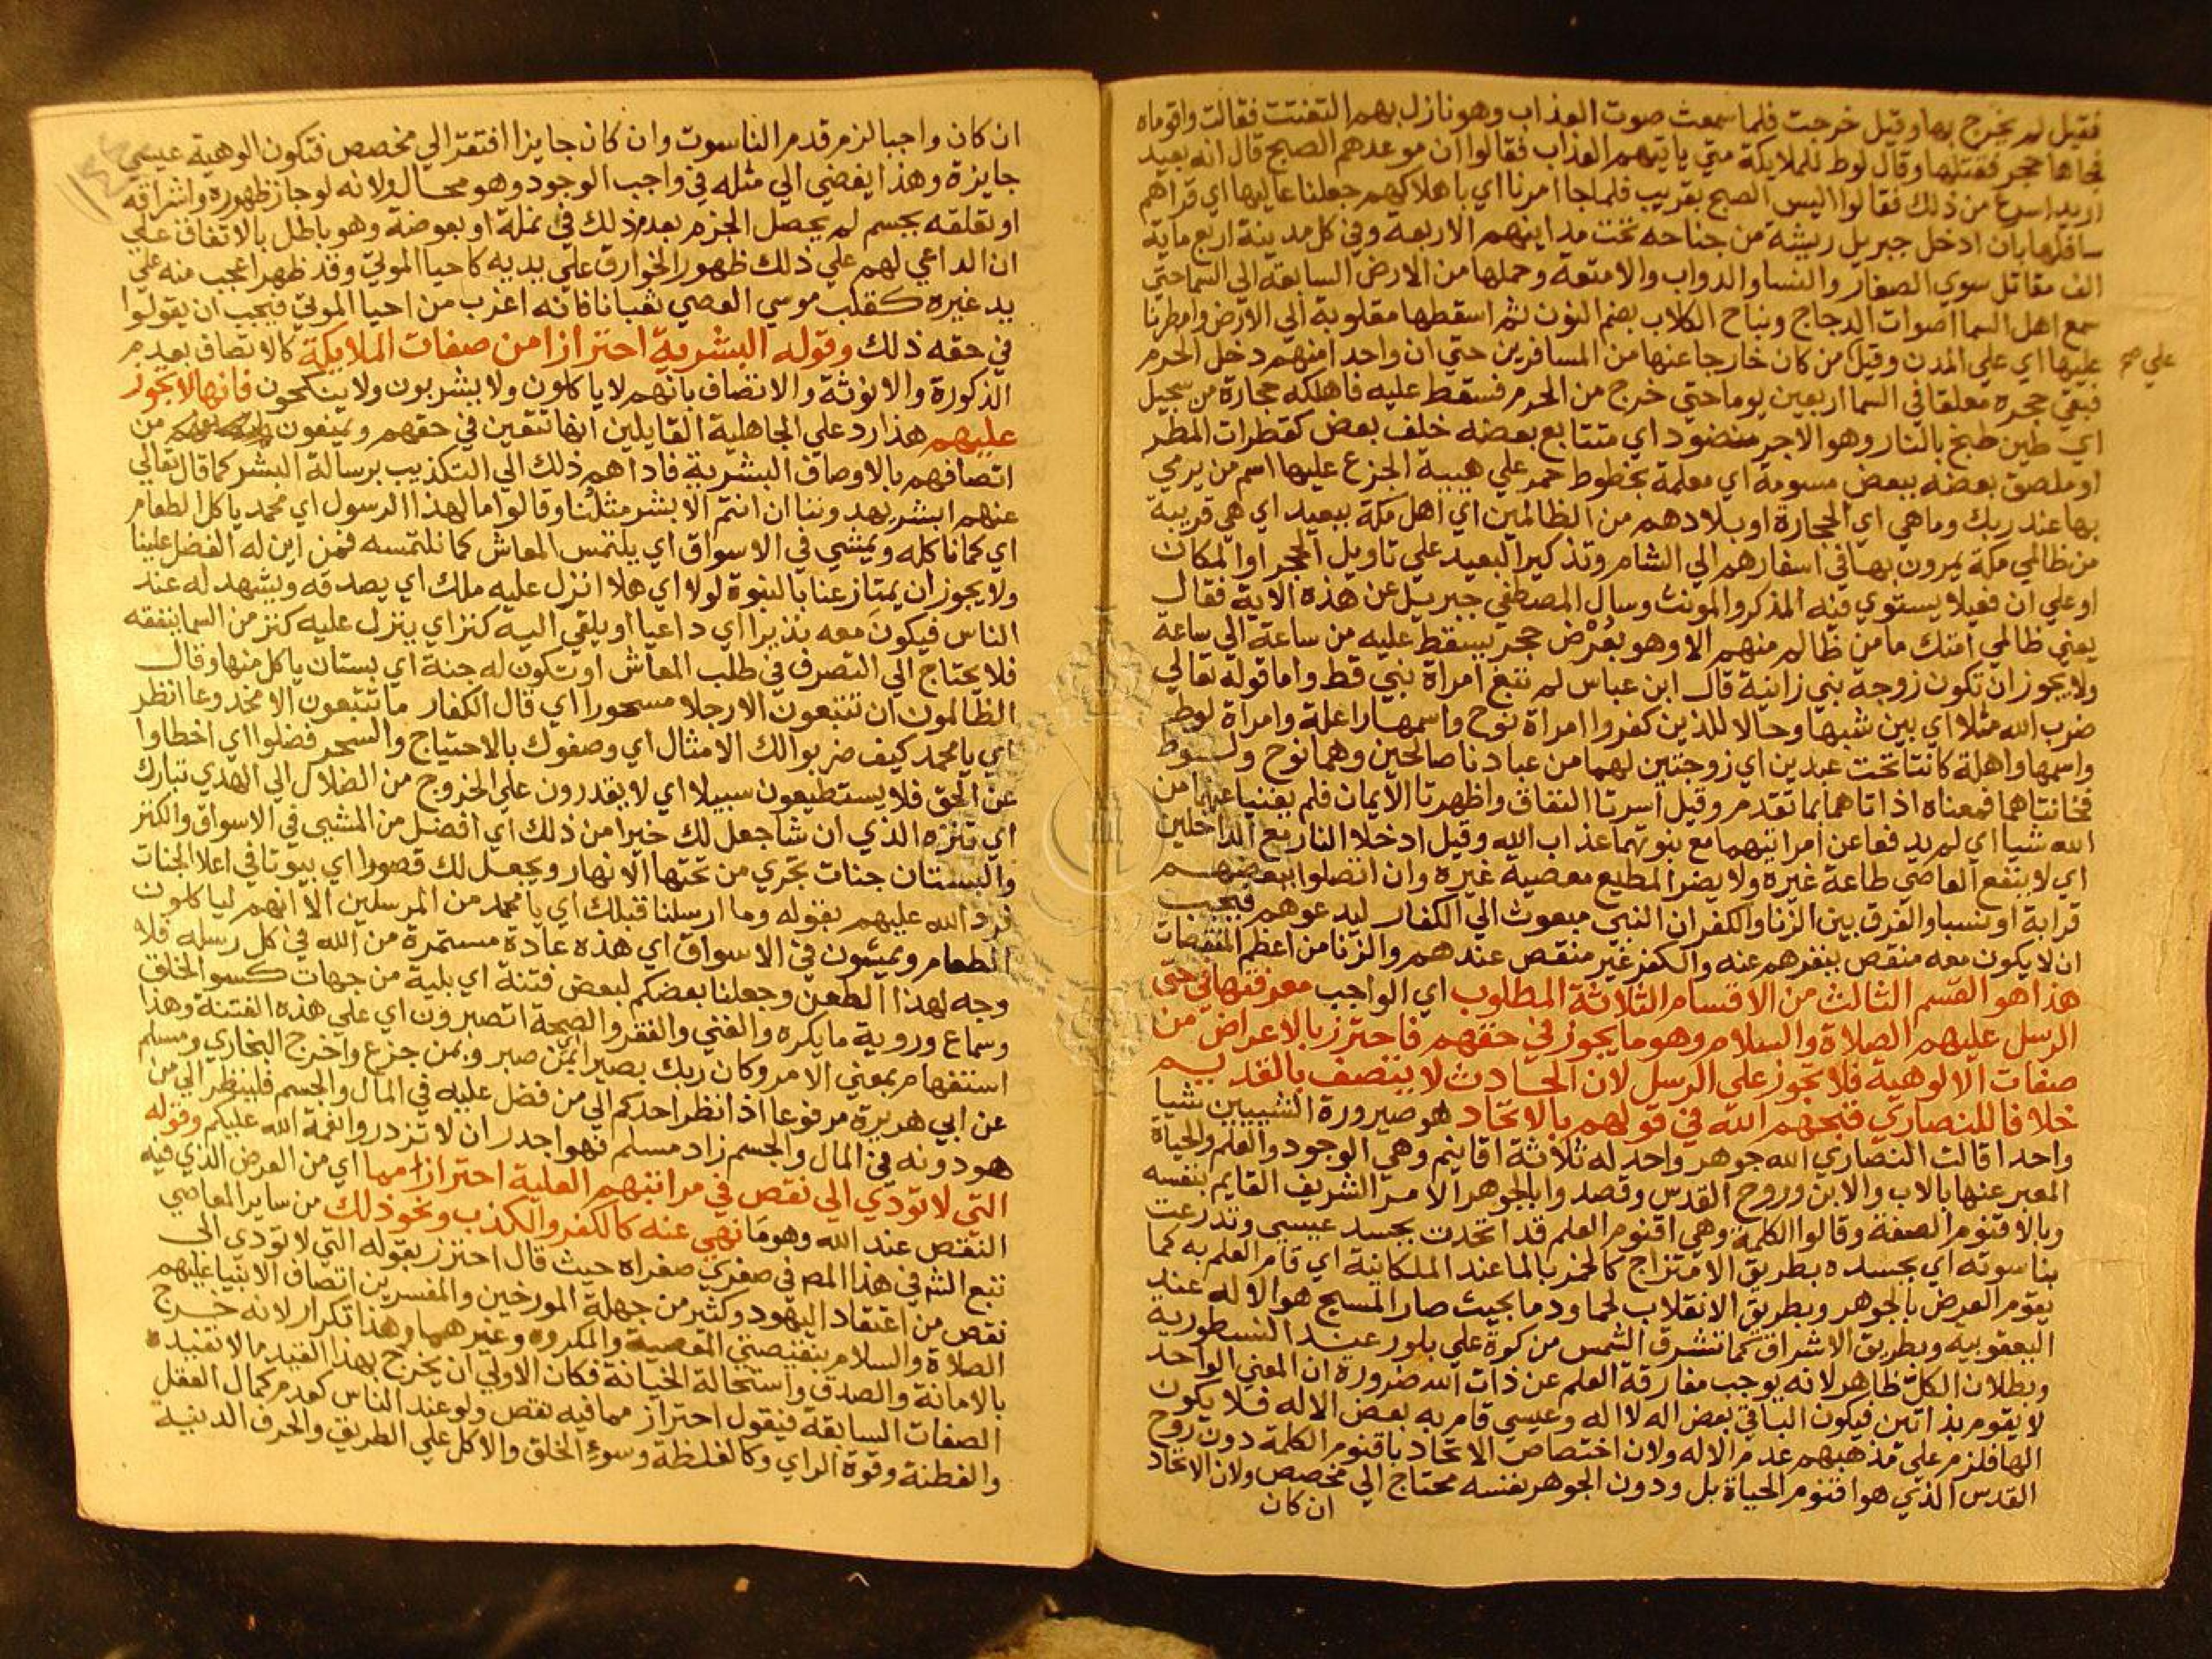 فقيل لم يخرج بها وقيل خرجت فلما سمعت صوت العذاب وهو نازل بهم التفتت فقالت واقوماه
فجاها حجر فقتلها وقال لوط للملايكة متي ياتيهم العذاب فقالوا ان موعدهم الصبح قال انه بعيد
اريد اسرع من ذلك فقالوا اليس الصبح بقريب فلما جا امرنا اي باهلاكهم جعلنا عاليها اي قراهم
سافلها بان ادخل جبريل ريشة من جناحه تحت مداينهم الاربعة وفي كل مدينة اربع ماية
الف مقاتل سوي الصغار والنسا والدواب والامتعة وحملها من الارض السابعة الي السما حتي
سمع اهل السما اصوات الدجاج ونباح الكلاب بضم النون ثم اسقطها مقلوبة الي الارض وامطرنا
عليها اي علي المدن وقيل من كان خارجا عنها من المسافرين حتي ان واحدا منهم دخل الحرم
فبقي حجره معلقا في السما اربعين يوما حتي خرج من الحرم فسقط عليه فاهلكه حجارة من سجيل
اي طين طبخ بالنار وهو الاجر منضود اي متتابع بعضه خلف بعض كقطرات المطر
او ملصق بعضه ببعض مسومة اي معلمة بخطوط حمر علي هيية الجزع عليها اسم من يرمي
بها عند ربك وما هي اي الحجارة او بلادهم من الظالمين اي اهل مكة ببعيد اي هي قريبة
من ظالمي مكة يمرون بها في اسفارهم الي الشام وتذكير البعيد علي تاويل الحجر او المكان
او علي ان فعيلا يستوي فيه المذكر والمونث وسال المصطفي جبريل عن هذه الاية فقال
يعني ظالمي امتك ما من ظالم منهم الا وهو بعرض حجر يسقط عليه من ساعة الي ساعة
ولا يجوز ان تكون زوجة نبي زانية قال ابن عباس لم تبغ امراة نبي قط واما قوله تعالي
ضرب الله مثلا اي بين شبها وحالا للذين كفروا امراة نوح واسمها راعلة وامراة لوط
واسمها واهلة كانتا تحت عبدين اي زوجتين لهما من عبادنا صالحين وهما نوح ولوط
فخانتاهما فمعناه اذاتاهما بما تقدم وقيل اسرتا النفاق واظهرتا الايمان فلم يغنيا عنهما من
الله شيا اي لم يدفعا عن امراتيهما مع نبوتهما عذاب الله وقيل ادخلا النار مع الداخلين
اي لا ينفع العاصي طاعة غيره ولا يضر المطيع معصية غيره وان اتصلوا ببعضهم
قرابة او نسبا والفرق بين الزنا والكفر ان النبي مبعوث الي الكفار ليدعوهم فيجب
ان لا يكون معه منقص ينفرهم عنه والكفر غير منقص عندهم والزنا من اعظم المنقصات
هذا هو القسم الثالث من الاقسام الثلاثة المطلوب اي الواجب معرفتها في حق
الرسل عليهم الصلاة والسلام وهو ما يجوز في حقهم فاحترز بالاعراض من
صفات الالوهية فلا تجوز علي الرسل لان الحادث لا يتصف بالقديم
خلافا للنصاري قبحهم الله في قولهم بالاتحاد هو صيرورة الشييين شيا
واحدا قالت النصاري الله جوهر واحد له ثلاثة اقانيم وهي الوجود والعلم والحياة
المعبر عنها بالاب والابن وروح القدس وقصدوا بالجوهر الامر الشريف القايم بنفسه
وبالاقنوم الصفة وقالوا الكلمة وهي اقنوم العلم قد اتحدت بجسد عيسي وتدرعت
بناسوته اي بجسده بطريق الامتزاج كالخمر بالما عند الملكانية اي قام العلم به كما
يقوم العرض بالجوهر وبطريق الانقلاب لحما ودما بحيث صار المسيح هو الاله عند
اليعقوبية وبطريق الاشراق كما تشرق الشمس من كوة علي بلور عند النسطورية
وبطلان الكل ظاهر لانه يوجب مفارقة العلم عن ذات الله ضرورة ان المعني الواحد
لا يقوم بذاتين فيكون الباقي بعض اله لا اله وعيسي قام به بعض الاله فلا يكون
الها فلزم علي مذهبهم عدم الاله ولان اختصاص الاتحاد باقنوم الكلمة دون روح
القدس الذي هو اقنوم الحياة بل ودون الجوهر بنفسه محتاج الي مخصص ولان الاتحاد
ان كان
علي صح
ان كان واجبا لزم قدم الناسوت وان كان جايزا افتقر الي مخصص فتكون الوهية عيسي
جايزة وهذا يفضي الي مثله في واجب الوجود وهو محال ولانه لو جاز ظهوره واشراقه
او تعلقه بجسم لم يحصل الجزم بعدم ذلك في نملة او بعوضة وهو باطل بالاتفاق علي
ان الداعي لهم علي ذلك ظهور الخوارق علي يديه كاحيا الموتي وقد ظهر اعجب منه علي
يد غيره كقلب موسي العصي ثعبانا فانه اغرب من احيا الموتي فيجب ان يقولوا
في حقه ذلك وقوله البشرية احترازا من صفات الملايكة كالاتصاف بعدم
الذكورة والانوثة والاتصاف بانهم لا ياكلون ولا يشربون ولا ينكحون فانها لا يجوز
عليهم هذا رد علي الجاهلية القايلين انها تتعين في حقهم ويمنعون من
اتصافهم بالاوصاف البشرية فاداهم ذلك الي التكذيب برسالة البشر كما قال تعالي
عنهم ابشر يهدوننا ان انتم الا بشر مثلنا وقالوا ما لهذا الرسول اي محمد ياكل الطعام
اي كما ناكله ويمشي في الاسواق اي يلتمس المعاش كما نلتمسه فمن اين له الفضل علينا
ولا يجوز ان يمتاز عنا بالنبوة لولا اي هلا انزل عليه ملك اي يصدقه ويشهد له عند
الناس فيكون معه نذيرا اي داعيا او يلقي اليه كنز اي ينزل عليه كنز من السما ينفقه
فلا يحتاج الي التصرف في طلب المعاش او تكون له جنة اي بستان ياكل منها وقال
الظالمون ان تتبعون الا رجلا مسحورا اي قال الكفار ما تتبعون الا مخدوعا انظر
اي يا محمد كيف ضربوا لك الامثال اي وصفوك بالاحتياج والسحر فضلوا اي اخطاوا
عن الحق فلا يستطيعون سبيلا اي لا يقدرون علي الخروج من الضلال الي الهدي تبارك
اي تنزه الذي ان شا جعل لك خيرا من ذلك اي افضل من المشي في الاسواق والكنز
والبستان جنات تجري من تحتها الانهار ويجعل لك قصورا اي بيوتا في اعلا الجنات
فرد الله عليهم بقوله وما ارسلنا قبلك اي يا محمد من المرسلين الا انهم لياكلون
الطعام ويمشون في الاسواق اي هذه عادة مستمرة من الله في كل رسله فلا
وجه لهذا الطعن وجعلنا بعضكم لبعض فتنة اي بلية من جهات كسو الخلق
وسماع وروية ما يكره والغني والفقر والصحة اتصبرون اي علي هذه الفتنة وهذا
استفهام بمعني الامر وكان ربك بصيرا بمن صبر وبمن جزع واخرج البخاري ومسلم
عن ابي هريرة مرفوعا اذا نظر احدكم الي من فضل عليه في المال والجسم فلينظر الي من
هو دونه في المال والجسم زاد مسلم فهو اجدر ان لا تزدروا نعمة الله عليكم وقوله
التي لا تودي الي نقص في مراتبهم العلية احترازا مما اي من العرض الذي فيه
النقص عند الله وهو ما نهي عنه كالكفر والكذب ونحو ذلك من ساير المعاصي
تبع الش في هذا المص في صغري صغراه حيث قال احترز بقوله التي لا تودي الي
نقص من اعتقاد اليهود وكثير من جهلة المورخين والمفسرين اتصاف الانبيا عليهم
الصلاة والسلام بنقيصتي المعصية والمكروه وغيرهما وهذا تكرار لانه خرج
بالامانة والصدق واستحالة الخيانة فكان الاولي ان يخرج بهذا القيد ما لا تفيده
الصفات السابقة فيقول احتراز مما فيه نقص ولو عند الناس كعدم كمال العقل
والفطنة وقوة الراي وكالغلظة وسوء الخلق والاكل علي الطريق والحرف الدنية